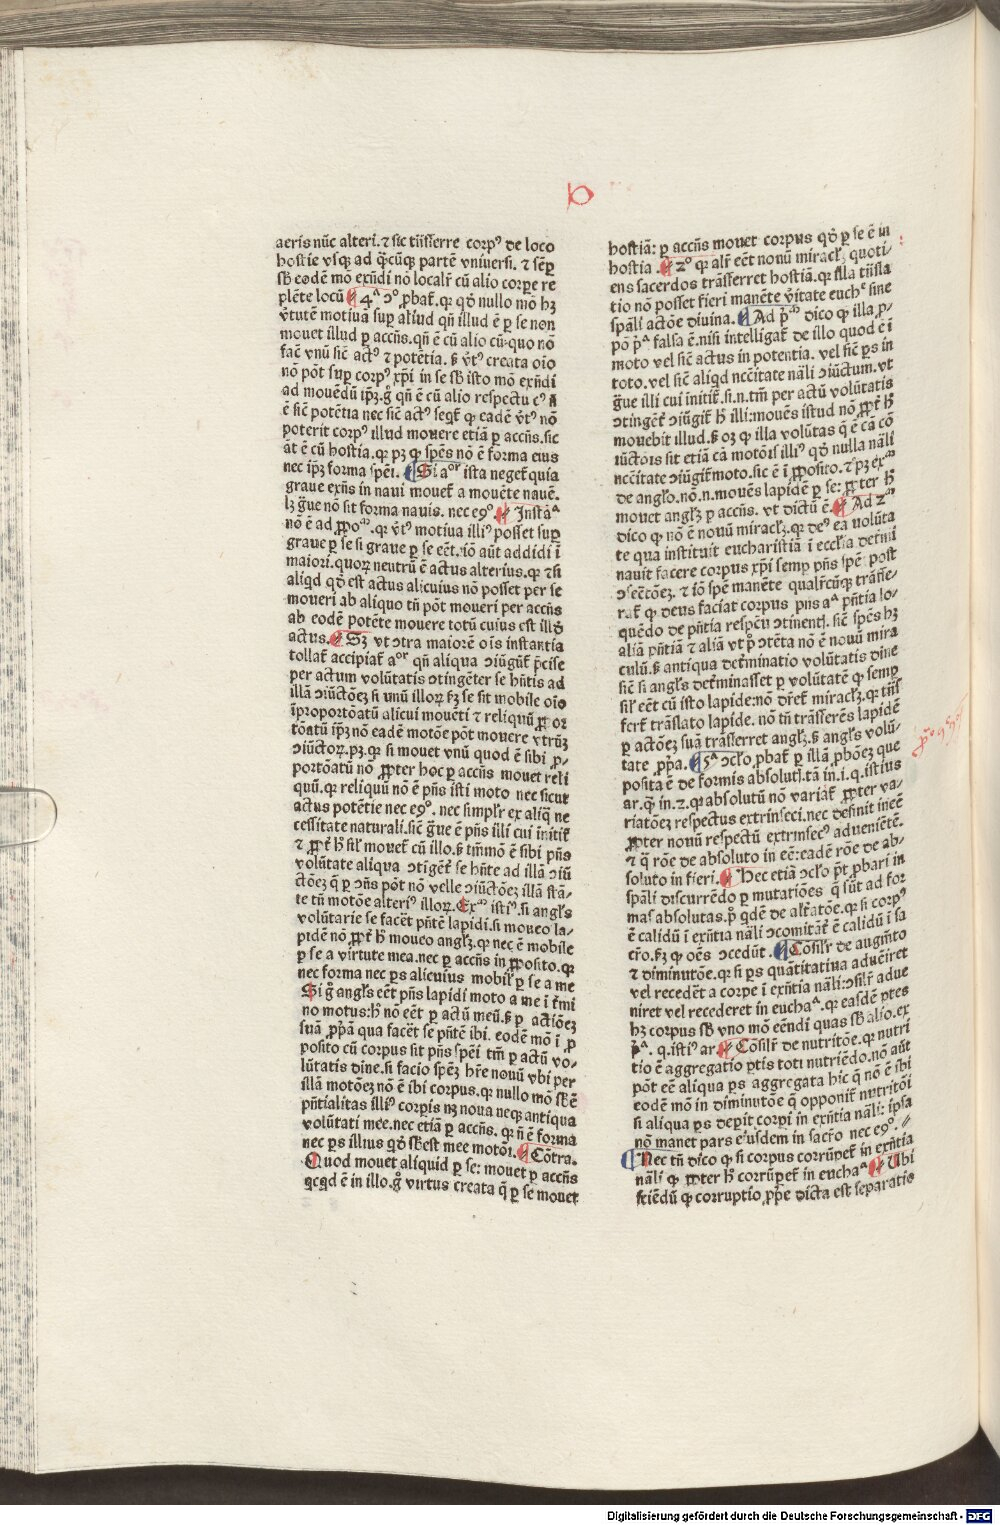 b
aeris nūc alteri. ⁊ sic trāsferre corpꝰ de loco
hostie vsqꝫ ad q̄cūqꝫ partē vniuersi. ⁊ sēꝑ
sb̄ eodē mō exn̄di nō localr̄ cū alio corꝑe re
plēte locū ¶ 4ᵃ ↄ° ꝓbat̄. qꝛ qd̓ nullo mō hꝫ
v̓tutē motiuā suꝑ aliud qn̄ illud ē ꝑ se non
mouet illud ꝑ accn̄s. qn̄ ē cū alio cū quo nō
facē vnū sic̄ actꝰ ⁊ potētia. ẜ v̓tꝰ creata oīo
nō pōt suꝑ corpꝰ xp̄i in se sb̄ isto mō exn̄di
ad mouēdū ip̄ꝫ. g̊ qn̄ ē cū alio respectu cꝰ n̄
ē sic̄ potētia nec sic̄ actꝰ seqt̄ ꝙ eadē v̓tꝰ nō
poterit corpꝰ illud mouere etiā ꝑ accn̄s. sic
at ē cū hostia. qꝛ pꝫ ꝙ spēs nō ē forma eius
nec ip̄ꝫ forma spēi. ¶ Si aᵒʳ ista neget̄ quia
graue exn̄s in naui mouet̄ a mouēte nauē.
lꝫ g̃ue nō sit forma nauis. nec e9° ¶ Instā͛ᵃ
nō ē ad ꝓpoᵐ. qꝛ v̓tꝰ motiua illiꝰ posset suꝑ
graue ꝑ se si graue ꝑ se eēt. iō aūt addidi ī
maiori. quoꝝ neutrū ē actus alterius. qꝛ ⁊ si
aliqd qd̓ est actus alicuius nō posset per se
moueri ab aliquo tn̄ pōt moueri per accn̄s
ab eodē potēte mouere totū cuius est illd̓
actus. ¶ Sꝫ vt ↄtra maiorē oīs instantia
tollat̄ accipiat̄ aᵒʳ qn̄ aliqua ↄiūgūt̄ p̄cise
per actum volūtatis ↄtingēter se hn̄tis ad
illā ↄiūctōeꝫ si vnū illoꝝ fꝫ se sit mobile oīo
īproportōatū alicui mouēti ⁊ reliquū ꝓpor
tōatū ipꝫ nō eadē motōe pōt mouere vtrūꝫ
ↄiūctoꝝ. pꝫ. qꝛ si mouet vnū quod ē sibi ꝓ-
portōatū nō ꝓpter hoc ꝑ accn̄s mouet reli
quū. qꝛ reliquū nō ē pn̄s isti moto nec sicut
actus potētie nec e9°. nec simplr̄ ex aliq̄ ne
cessitate naturali. sic̄ g̃ue ē pn̄s illi cui initit̄
⁊ ꝓpt̄ h̄ sil̄ mouet̄ cū illo. ẜ tm̄mō ē sibi pn̄s
volūtate aliqua ↄtiget̄ se hn̄te ad illā ↄiū
ctōeꝫ q̄ ꝑ ↄn̄s pōt nō velle ↄiūctōeꝫ illā stā-
te tn̄ motōe alteriꝰ illoꝝ. Exᵐ istiꝰ. si angl̄s
volūtarie se facēt pn̄tē lapidi. si moueo la-
pidē nō ꝓpt̄ h̄ moueo angl̄ꝫ. qꝛ nec ē mobile
ꝑ se a virtute mea. nec ꝑ accn̄s in ꝓposito. qꝛ
nec forma nec ps alicuius mobil̄ ꝑ se a me
Si g̊ angl̄s eēt pn̄s lapidi moto a me ī t̓mi
no motus: h̓ nō eēt ꝑ actū meū. ẜ ꝑ actiōeꝫ
suā ꝓpā qua facēt se pn̄tē ibi. eodē mō ī ꝓ
posito cū corpus sit pn̄s spēi tm̄ ꝑ actū vo-
lūtatis dīne. si facio spēꝫ hr̄e nouū vbi per
illā motōeꝫ nō ē ibi corpus. qꝛ nullo mō sb̄ ē
pn̄tialitas illiꝰ corpis nꝫ noua neqꝫ antiqua
volūtati mee. nec etiā ꝑ accn̄s. qꝛ n̄ ē forma
nec ps illius qd̓ sb̄est mee motōi. ¶ Cōtra.
Quod mouet aliquid ꝑ se: mouet ꝑ accn̄s
qcqd ē in illo. g̊ virtus creata q̄ ꝑ se mouet
hostiā: ꝑ accn̄s mouet corpus qd̓ ꝑ se ē in
hostia. ¶ 2° qꝛ alr̄ eēt nouū miracl̄ꝫ quoti-
ens sacerdos trāsferret hostiā. qꝛ illa trāsla
tio nō posset fieri manēte v̓itate euchᵉ sine
spāli actōe diuina. ¶ Ad p̓ᵐ dico ꝙ illa ꝓ-
pō p̓ᵃ falsa ē. nisi intelligat̄ de illo quod ē ī
moto vel sic̄ actus in potentia. vel sic̄ ps in
toto. vel sic̄ aliqd nccītate nāli ↄiūctum. vt
g̃ue illi cui initit̄. si. n. tm̄ per actū volūtatis
ↄtingēt̄ ↄiūgit̄ h̄ illi: mouēs istud nō ꝓpt̄ h̄
mouebit illud. ẜ oꝫ ꝙ illa volūtas q̄ ē cā cō
iūctōis sit etiā cā motōis illiꝰ qd̓ nulla nāli
nccītate ↄiūgit̄ moto. sic ē ī ꝓposito. ⁊ pꝫ exᵐ
de anglo. nō. n. mouēs lapidē ꝑ se: ꝓpter h̄
mouet angl̄ꝫ ꝑ accn̄s. vt dictū ē. ¶ Ad 2ᵐ
dico ꝙ nō ē nouū miracl̄ꝫ. qꝛ deꝰ ea volūta
te qua instituit eucharistiā ī eccl̄ia det̓mi
nauit facere corpus xp̄i semꝑ pn̄s spēi post
ↄsec̄tōeꝫ. ⁊ iō spē manēte qualr̄cūqꝫ trāsfe-
rat̄ ꝙ deus faciat corpus pn̄s aᵃ pn̄tia lo-
quēdo de pn̄tia respcū ↄtinentꝭ. sic̄ spēs hꝫ
aliā pn̄tiā ⁊ aliā vt p̊ ↄtēta nō ē nouū mira
culū. ẜ antiqua det̓minatio volūtatis dīne
sic̄ si angl̄s det̓minasset ꝑ volūtatē ꝙ semꝑ
sil̄ eēt cū isto lapide: nō dr̄et̄ miracl̄ꝫ. qꝛ trāsf
fert̄ trāslato lapide. nō tn̄ trāsferēs lapidē
ꝑ actōeꝫ suā trāsferret angl̄ꝫ. ẜ angl̄s volū-
tate ꝓpa. ¶ 5ᵃ ↄclo ꝓbat̄ ꝑ illā ꝓbōeꝫ que
posita ē de formis absolutꝭ. tā in. i. q. istius
ar. q̄ in. 2. qꝛ absolutū nō variat̄ ꝓpter va-
riatōeꝫ respectus extrinseci. nec desinit īneē
ꝓpter nouū respectū extrinsecꝰ aduenietē.
⁊ q̄ rōe de absoluto in eē: eadē rōe de ab-
soluto in fieri. ¶ Hec etiā ↄclo p̄t ꝓbari in
spāli discurrēdo ꝑ mutatiōes q̄ sūt ad for
mas absolutas. p̓ qdē de alt̓atōe. qꝛ si corpꝰ
ē calidū ī exn̄tia nāli ↄcomitāt̄ ē calidū ī sa
cr̄o. fꝫ ꝙ oēs ↄcedūt. ¶ Cōsilr̄ de augm̄to
⁊ diminutōe. qꝛ si ps quātitatiua aduēiret
vel recedēt a corpe ī exn̄tia nāli: ↄsilr̄ adue
niret vel recederet in euchaᵃ. qꝛ easdē ptes
hꝫ corpus sb̄ vno mō eēndi quas sb̄ alio. ex
p̓ᵃ. q. istiꝰ ar. ¶ Cōsilr̄ de nutritōe. qꝛ nutri
tio ē aggregatio ptis toti nutriēdo. nō aūt
pōt eē aliqua ps aggregata hic q̄ nō ē ibi
eodē mō in diminutōe q̄ opponit̄ nutritōi
si aliqua ps depit corpī in exn̄tia nāli: ipsa
nō manet pars eiusdem in sacr̄o nec e9°.
¶ Nec tn̄ dico ꝙ si corpus corrūpet̄ in exn̄tia
nāli ꝙ ꝓpter h̄ corrūpet̄ in euchaᵃ ¶ Vbi
sciēdū ꝙ corruptio ꝓpe dicta est separatio
Digitalisierung gefördert durch die Deutsche Forschungsgemeinschaft - DFG